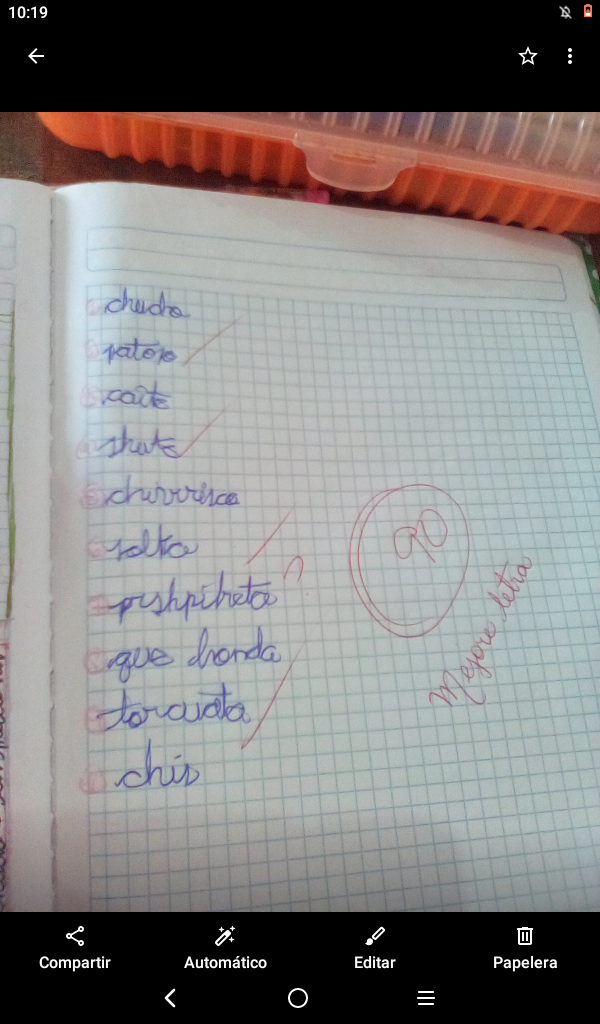 10:19
chucho
patojo
caite
shute
chirrisco
solta
pishpireta
?
que honda
torcuata
chis
90
Mejore letra
Compartir Automático Editar Papelera